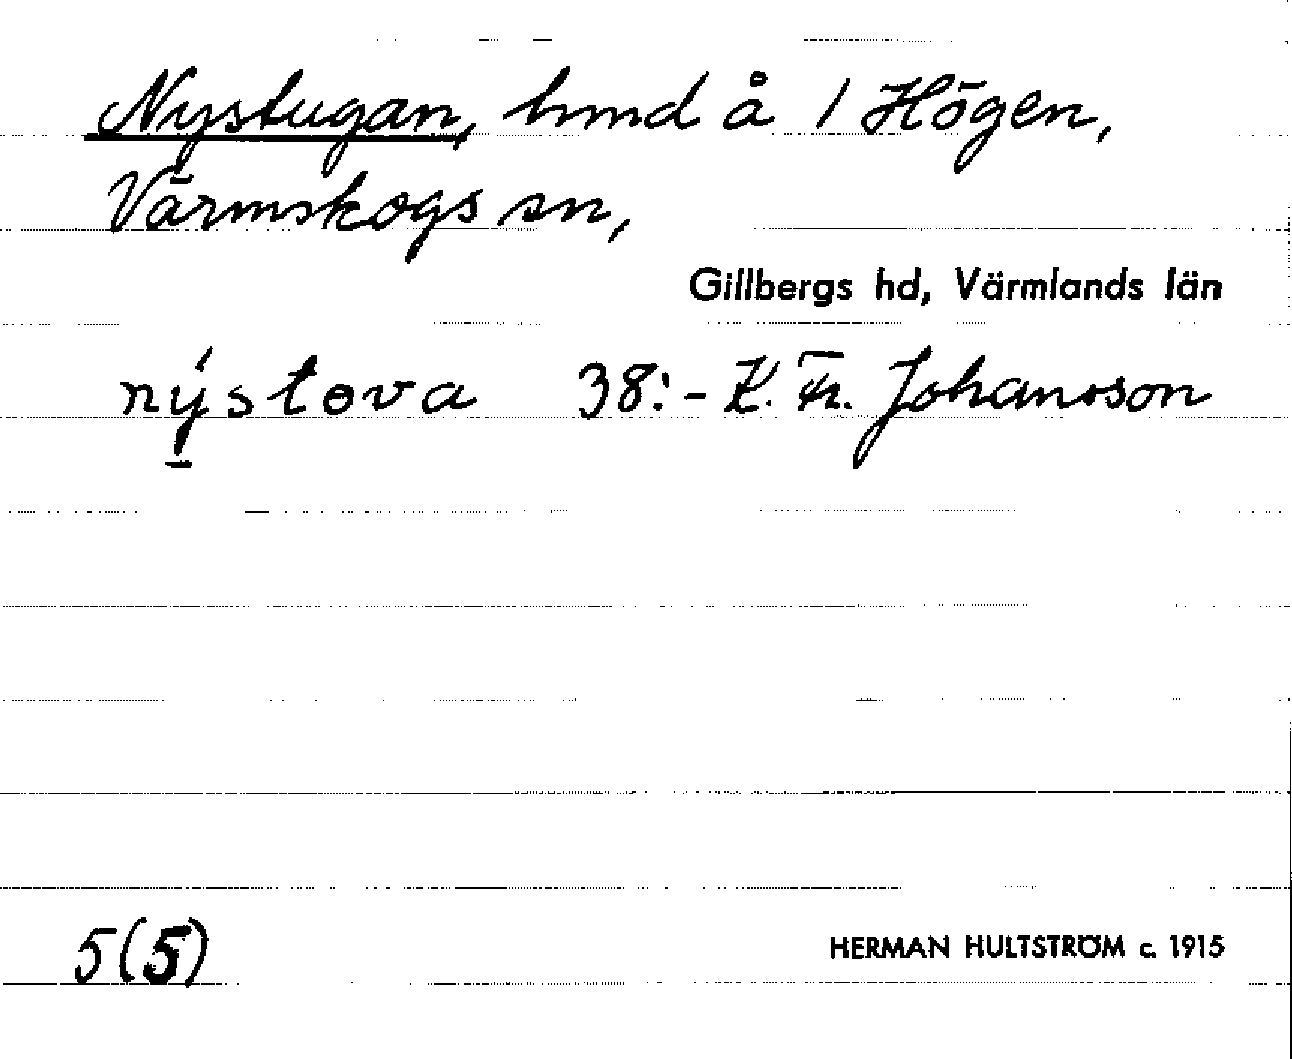 Nystugan, hmd å 1 Högen,
Värmskogs sn,
Gillbergs hd, Värmlands län
nýstova 38:- K. Fr. Johansson
5(5)
HERMAN HULTSTRÖM c. 1915